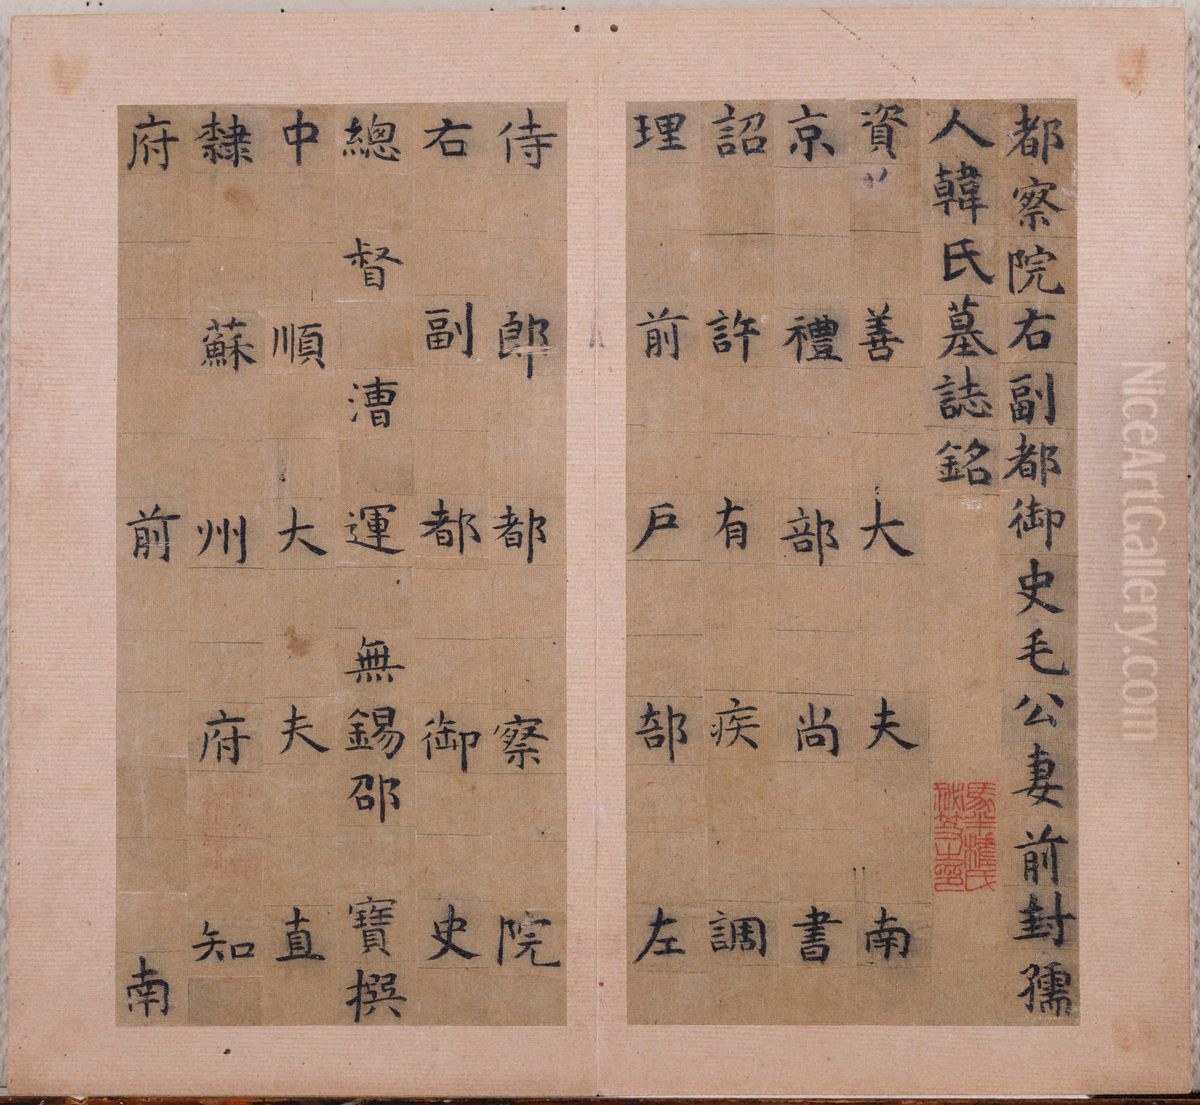 都察院右副都御史毛公妻前封孺
人韓氏墓誌銘
資善大夫南
京禮部尚書
詔許有疾調
理前戶部左
侍郎都察院
右副都御史
總督漕運無錫邵寶撰
中順大夫直
隸蘇州府知
府前南
NiceArtGallery.com